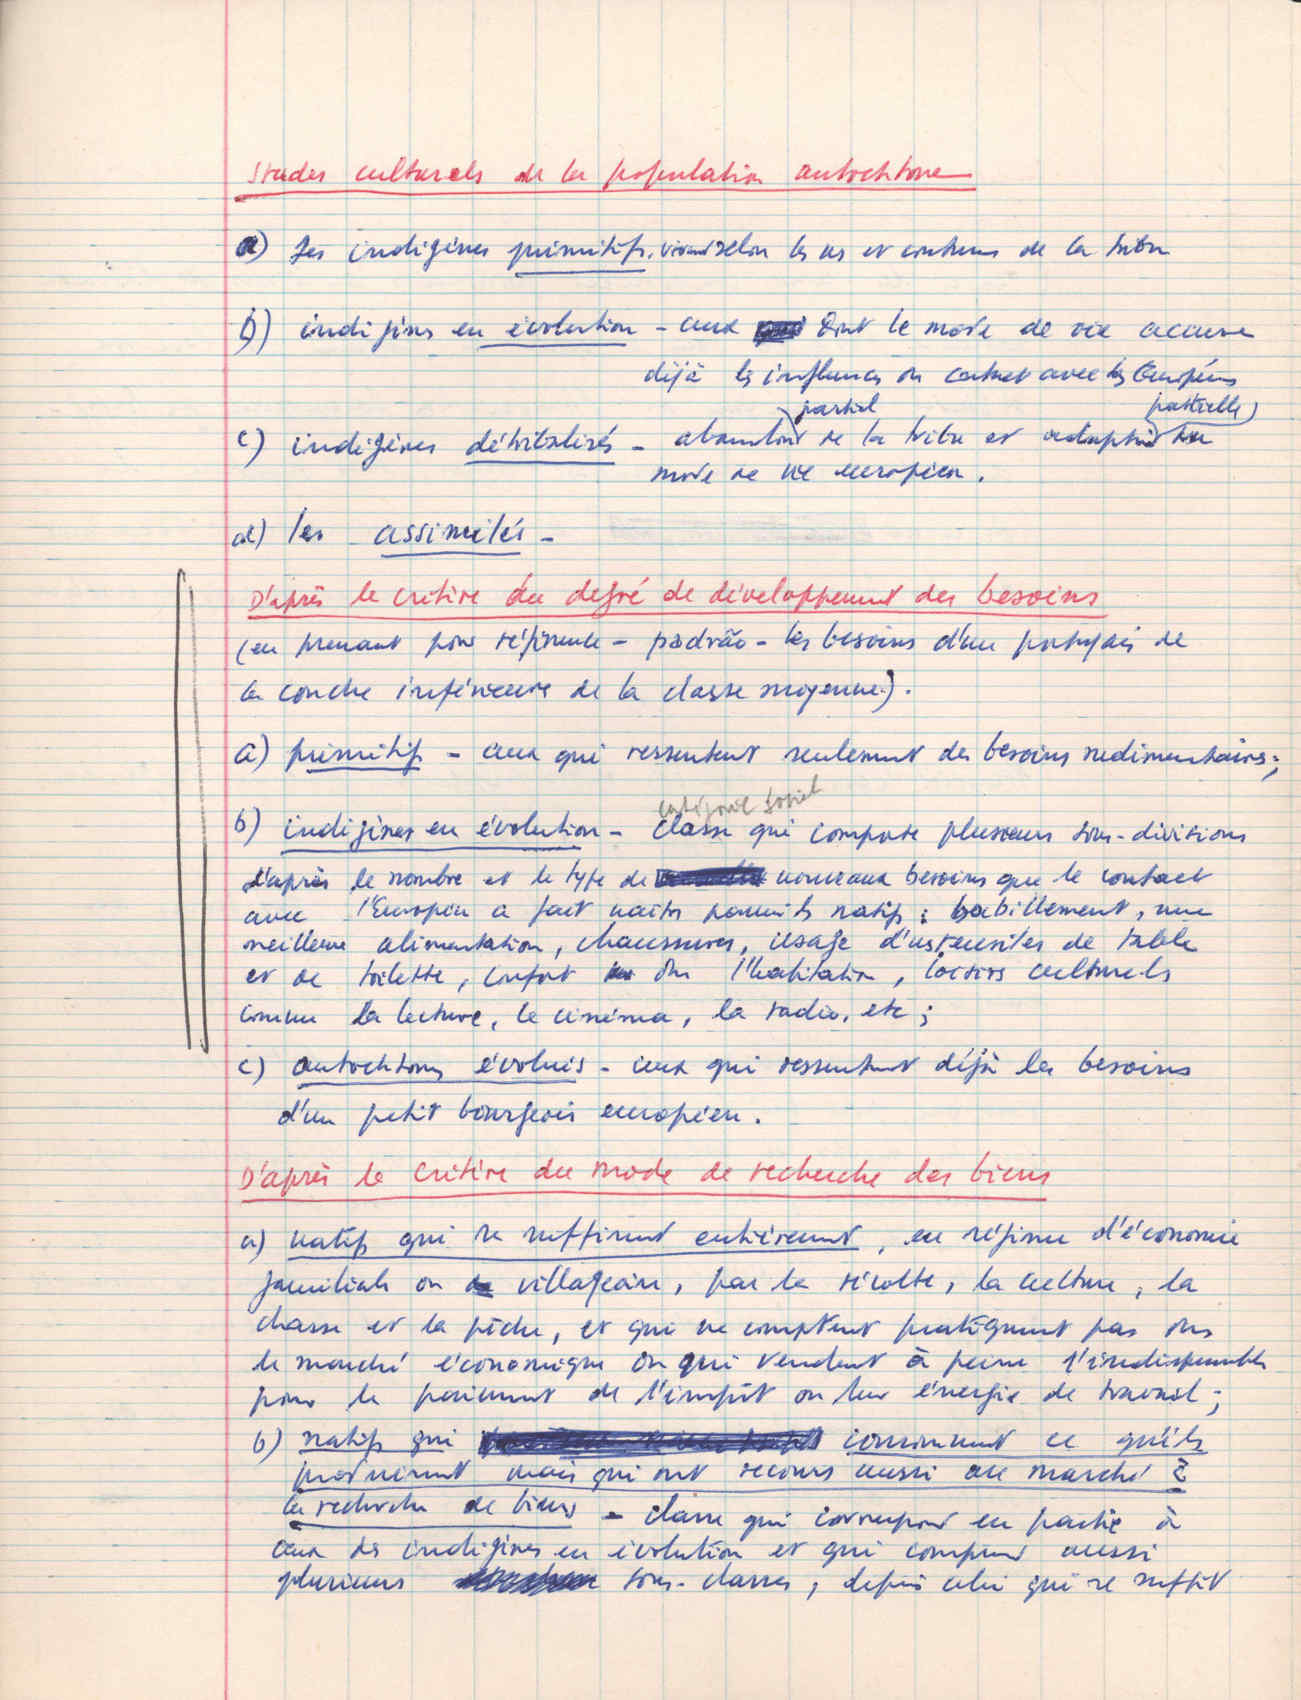 Stades culturels de la population autochtone
a) Les indigènes primitifs, vivant selon les us et coutumes de la tribu
b) indigènes en évolution – ceux dont le mode de vie accuse
déjà les influences du contact avec les Européens
partiel partielle)
c) indigènes détribalisés – abandon de la tribu et adaptation au
mode de vie européen.
d) les assimilés –
D'après le critère du degré de développement des besoins
(en prenant pour référence – padrão – les besoins d'un portugais de
la couche inférieure de la classe moyenne).
a) primitifs – ceux qui ressentent seulement des besoins rudimentaires;
catégorie social
b) indigènes en évolution – classe qui comporte plusieurs sous-divisions
d'après le nombre et le type de nouveaux besoins que le contact
avec l'Européen a fait naître parmi les natifs : habillement, une
meilleure alimentation, chaussures, usage d'ustensiles de table
et de toilette, confort dans l'habitation, loisirs culturels
comme la lecture, le cinéma, la radio, etc ;
c) autochtones évolués – ceux qui ressentent déjà les besoins
d'un petit bourgeois européen.
D'après le critère du mode de recherche des biens
a) natifs qui se suffisent entièrement, en régime d'économie
familiale ou villageoise, par la récolte, la culture, la
chasse et la pêche, et qui ne comptent pratiquement pas dans
le marché économique ou qui vendent à peine l'indispensable
pour le paiement de l'impôt ou leur énergie de travail ;
b) natifs qui consomment ce qu'ils
produisent mais qui ont recours aussi au marché à
la recherche de biens – classe qui correspond en partie à
ceux des indigènes en évolution et qui comprend aussi
plusieurs sous-classes, depuis celui qui se suffit